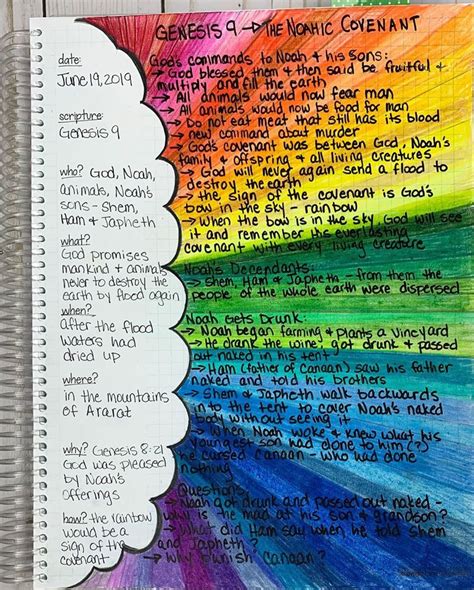 GENESIS 9 → THE NOAHIC COVENANT
date:
June 19, 2019
scripture:
Genesis 9
who? God, Noah,
animals, Noah's
sons - Shem,
Ham & Japheth
what?
God promises
mankind & animals
never to destroy the
earth by flood again
when?
after the flood
waters had
dried up
where?
in the mountains
of Ararat
why? Genesis 8:21
God was pleased
by Noah's
offerings
how? the rainbow
would be a
sign of the
covenant
God's commands to Noah & his sons:
→ God blessed them & then said be fruitful &
multiply and fill the earth
→ All animals would now fear man
→ All animals would now be food for man
→ Do not eat meat that still has its blood
→ new command about murder
→ God's covenant was between God, Noah's
family & offspring & all living creatures
→ God will never again send a flood to
destroy the earth
→ the sign of the covenant is God's
bow in the sky - rainbow
→ When the bow is in the sky God will see
it and remember this everlasting
covenant with every living creature
Noah's Decendants:
→ Shem, Ham & Japheth - from them the
people of the whole earth were dispersed
Noah Gets Drunk:
→ Noah began farming & plants a vineyard
→ He drank the wine, got drunk & passed
out naked in his tent
→ Ham (father of Canaan) saw his father
naked and told his brothers
→ Shem & Japheth walk backwards
into the tent to cover Noah's naked
body without seeing it
→ When Noah woke & knew what his
youngest son had done to him (?)
he cursed Canaan - who had done
nothing
Questions:
→ Noah got drunk and passed out naked -
why is he mad at his son & grandson?
→ What did Ham say when he told Shem
and Japheth?
→ Why punish Canaan?